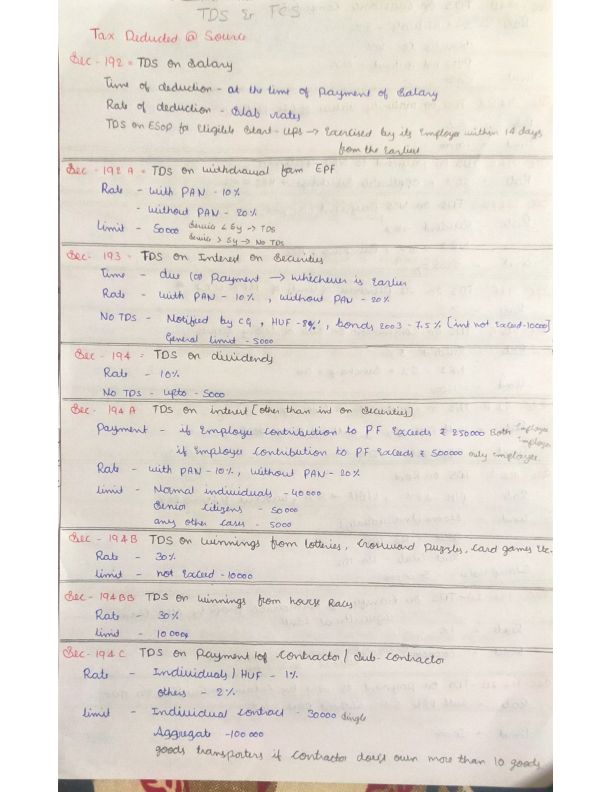 TDS & TCS
Tax Deducted @ Source
Sec - 192 = TDS on Salary
Time of deduction - at the time of Payment of Salary
Rate of deduction - Slab rates
TDS on ESOP for Eligible Start-ups → Exercised by its Employee within 14 days
from the Earliest
Sec - 192 A = TDS on withdrawal from EPF
Rate - with PAN - 10%
- without PAN - 20%
Limit - 50000 Service < 5y → TDS
Service > 5y → No TDS
Sec - 193 = TDS on Interest on Securities
Time - due (or) Payment → whichever is Earlier
Rate - with PAN - 10%, without PAN - 20%
NO TDS - Notified by CG, HUF - 8%, bonds 2003 - 7.5% [int not Exceed - 10000]
General limit - 5000
Sec - 194 = TDS on dividends
Rate - 10%
NO TDS - upto - 5000
Sec - 194 A TDS on interest [other than int on Securities]
Payment - if Employee contribution to PF Exceeds ₹ 250000 Both Employee
Employer
if Employee contribution to PF Exceeds ₹ 500000 only Employee
Rate - with PAN - 10%, without PAN - 20%
limit - Normal individuals - 40000
Senior Citizens - 50000
any other cases - 5000
Sec - 194B TDS on winnings from lotteries, Crossword Puzzles, Card games Etc.
Rate - 30%
limit - not Exceed - 10000
Sec - 194BB TDS on winnings from horse Races
Rate - 30%
limit - 10000
Sec - 194C TDS on Payment of Contractor / Sub-contractor
Rate - Individuals / HUF - 1%
others - 2%
limit - Individual contract - 30000 Single
Aggregate - 100000
goods transporters if contractor does own more than 10 goods